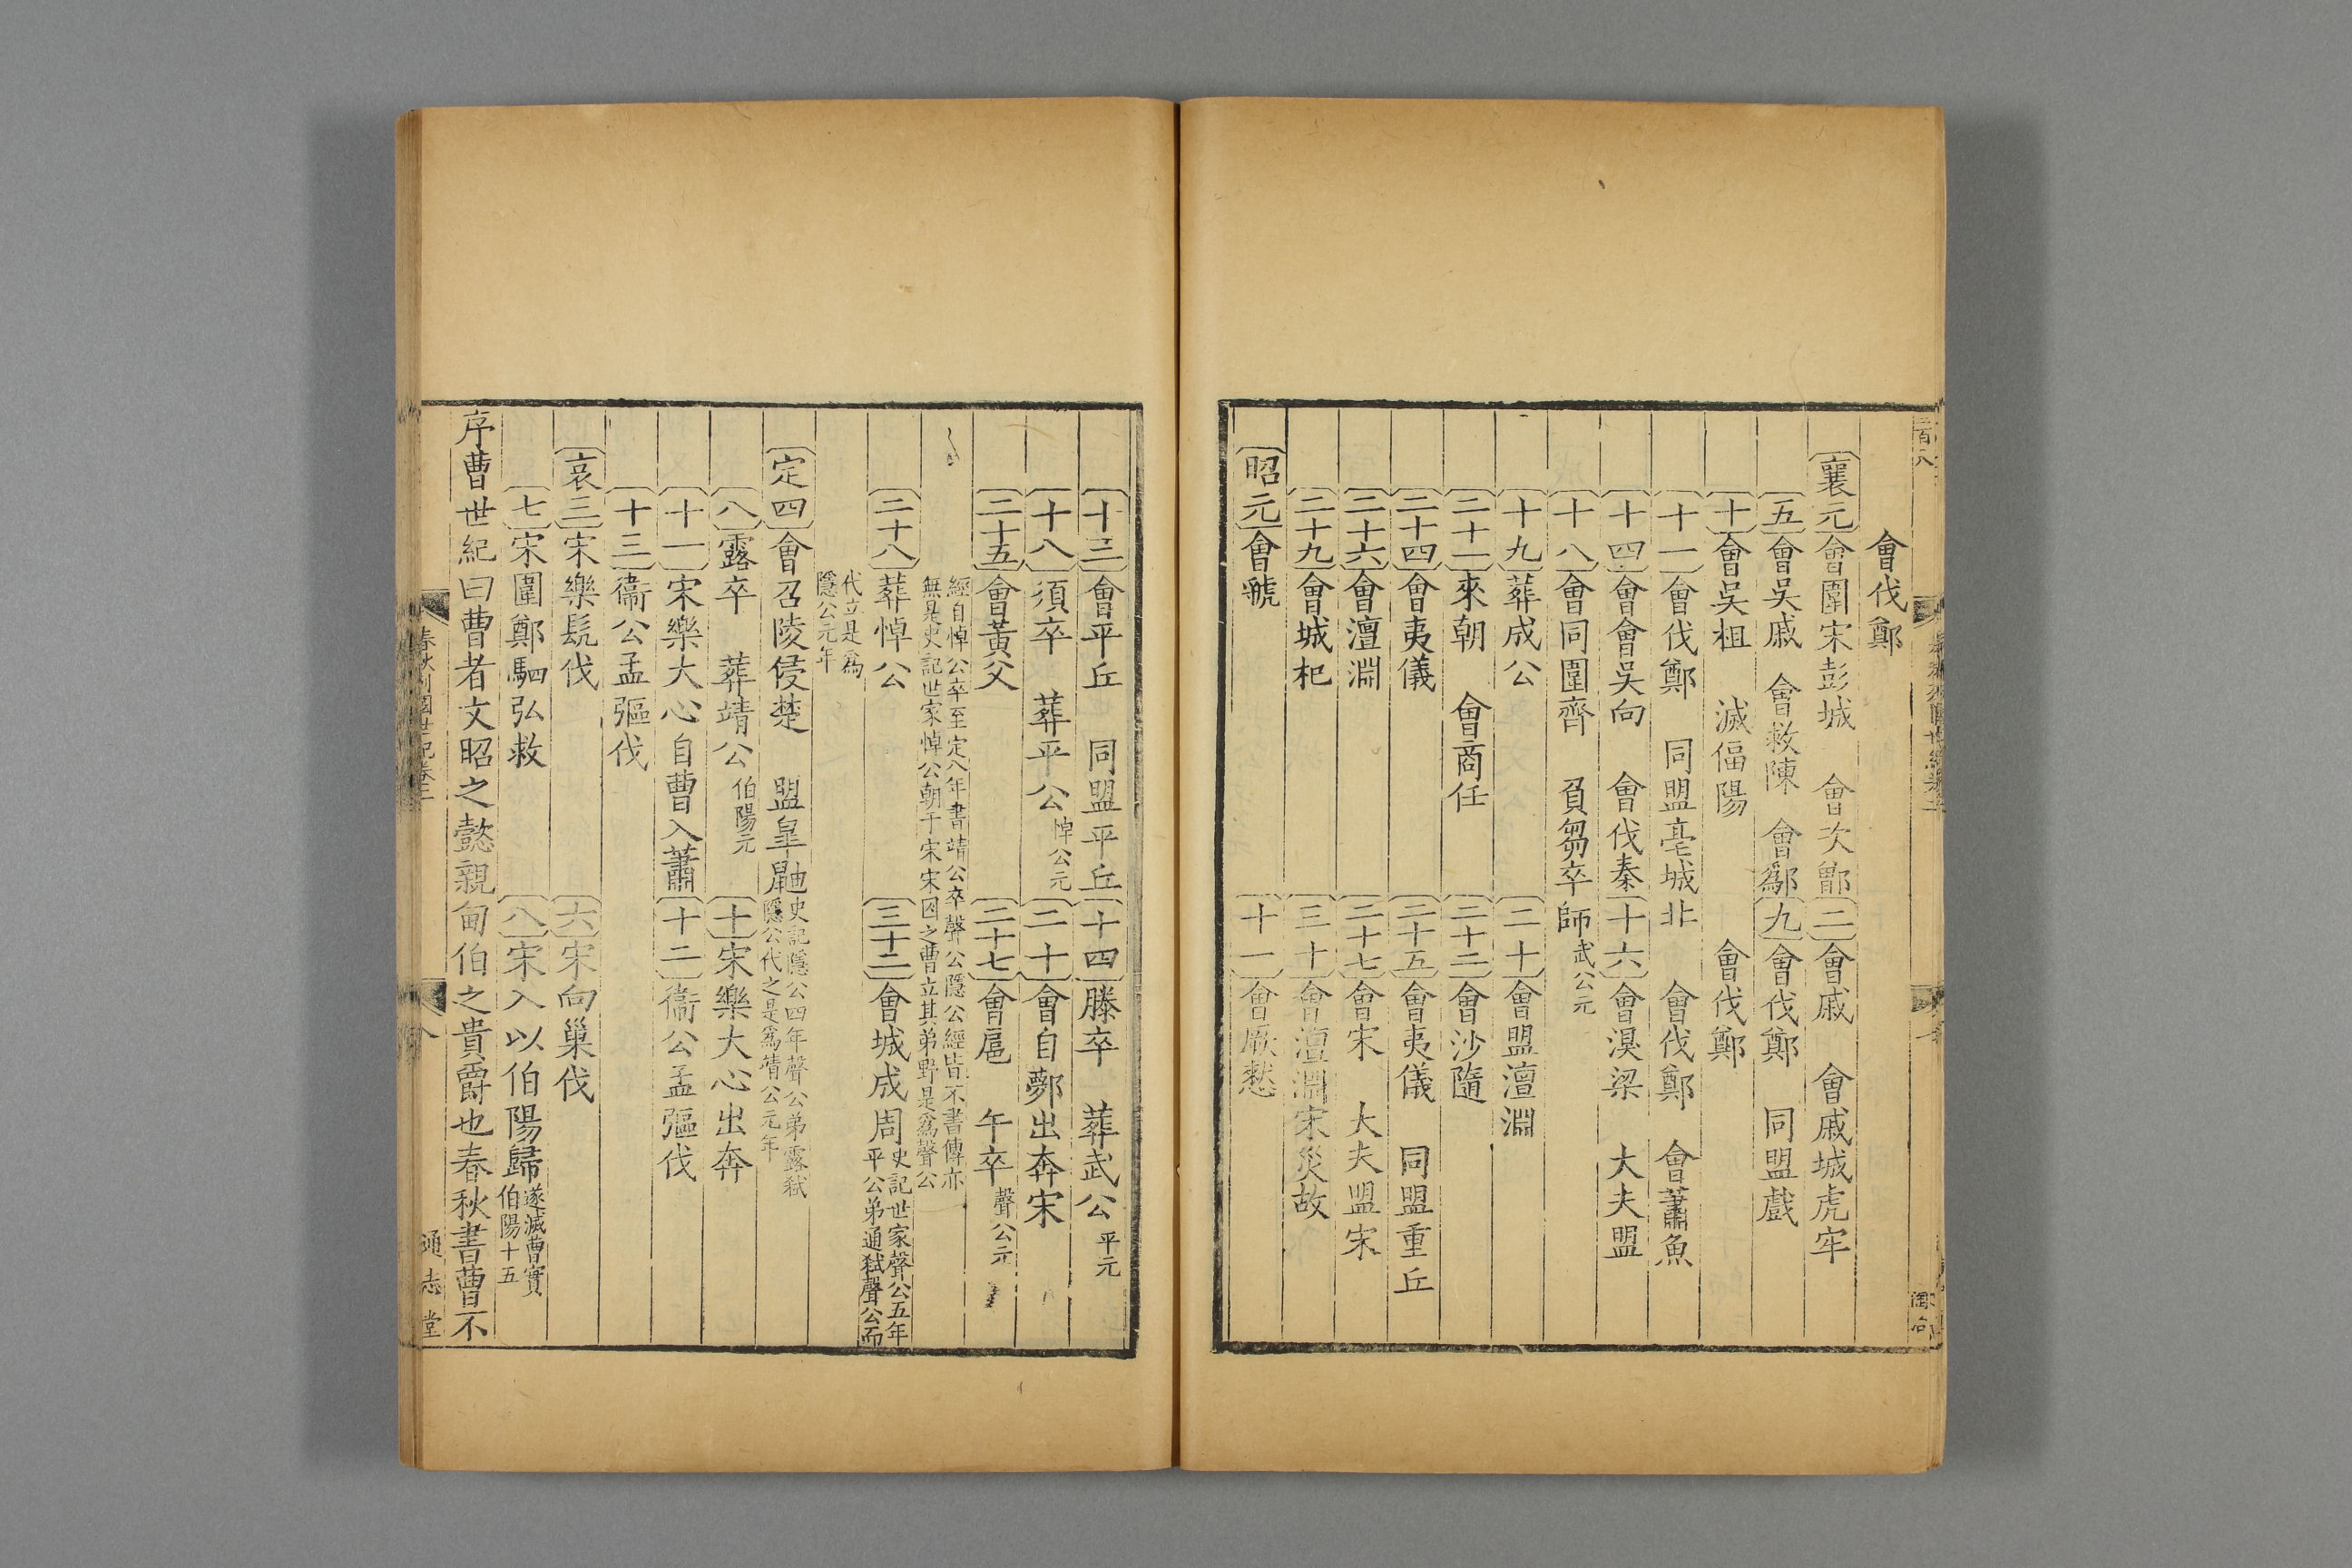 會伐鄭
襄元 會圍宋彭城 會次鄫 二 會戚 會戚城虎牢
五 會吳戚 會救陳 會鄬 九 會伐鄭 同盟戲
十 會吳柤 滅偪陽 會伐鄭
十一 會伐鄭 同盟亳城北 會伐鄭 會蕭魚
十四 會會吳向 會伐秦 十六 會湨梁 大夫盟
十八 會同圍齊 負芻卒師 武公元
十九 葬成公 二十 會盟澶淵
二十一 來朝 會商任 二十二 會沙隨
二十四 會夷儀 二十五 會夷儀 同盟重丘
二十六 會澶淵 二十七 會宋 大夫盟宋
二十九 會城杞 三十 會澶淵宋災故
昭元 會虢 十一 會厥憖
十三 會平丘 同盟平丘 十四 滕卒 葬武公 平元
十八 須卒 葬平公 悼公元 二十 會自鄸出奔宋
二十五 會黃父 二十七 會扈 午卒 聲公元
經自悼公卒至定八年書靖公卒聲公隱公經皆不書傳亦
無是史記世家悼公朝于宋宋囚之曹立其弟野是為聲公
二十八 葬悼公 三十二 會城成周 史記世家聲公五年
平公弟通弒聲公而
代立是為
隱公元年
定四 會召陵侵楚 盟皐鼬 史記隱公四年聲公弟露弒
隱公代之是為靖公元年
八 露卒 葬靖公 伯陽元 十 宋樂大心出奔
十一 宋樂大心自曹入蕭 十二 衞公孟彄伐
十三 衞公孟彄伐
哀三 宋樂髡伐 六 宋向巢伐
七 宋圍鄭駟弘救 八 宋入以伯陽歸 遂滅曹實
伯陽十五
序曹世紀曰曹者文昭之懿親甸伯之貴爵也春秋書曹不
春秋列國世紀卷三
八
通志堂